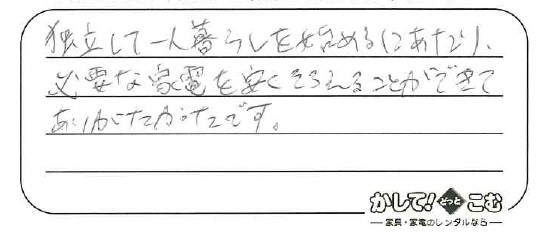 独立して一人暮らしを始めるにあたり、
必要な家電を安くそろえることができて
ありがたかったです。
かして!どっとこむ
家具・家電のレンタルなら